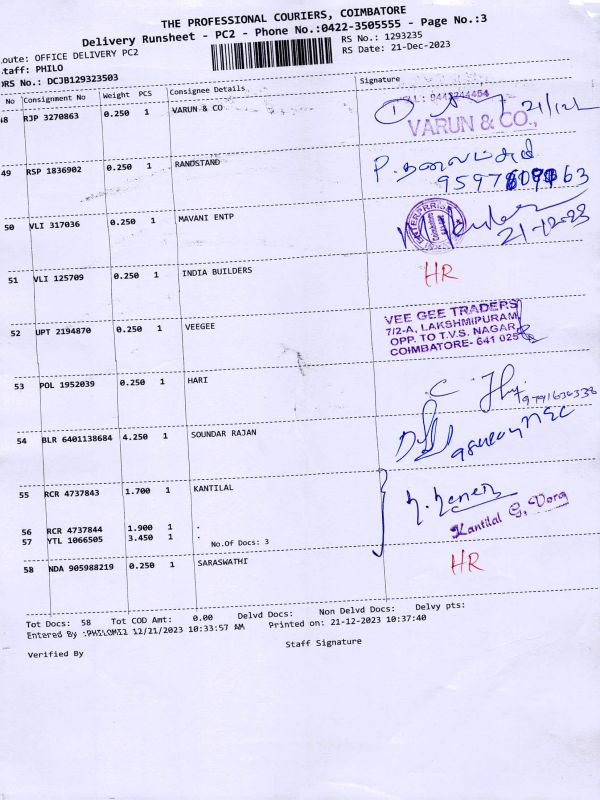 THE PROFESSIONAL COURIERS, COIMBATORE
Delivery Runsheet - PC2 - Phone No.:0422-3505555 - Page No.:3
oute: OFFICE DELIVERY PC2
RS No.: 1293235
taff: PHILO
RS Date: 21-Dec-2023
DRS No.: DCJB129323503
No Consignment No Weight PCS Consignee Details Signature
48 RJP 3270863 0.250 1 VARUN & CO
1 21/12
VARUN & CO.,
49 RSP 1836902 0.250 1 RANDSTAND
50 VLI 317036 0.250 1 MAVANI ENTP
21-12-23
51 VLI 125709 0.250 1 INDIA BUILDERS HR
52 UPT 2194870 0.250 1 VEEGEE
VEE GEE TRADERS
7/2-A, LAKSHMIPURAM
OPP. TO T.V.S. NAGAR,
COIMBATORE- 641 025
53 POL 1952039 0.250 1 HARI
54 BLR 6401138684 4.250 1 SOUNDAR RAJAN
55 RCR 4737843 1.700 1 KANTILAL
Kantilal G. Vora
56 RCR 4737844 1.900 1 .
57 YTL 1066505 3.450 1 .
No.Of Docs: 3
58 NDA 905988219 0.250 1 SARASWATHI HR
Tot Docs: 58 Tot COD Amt: 0.00 Delvd Docs: Non Delvd Docs: Delvy pts:
Entered By :PHILOMI2 12/21/2023 10:33:57 AM Printed on: 21-12-2023 10:37:40
Verified By Staff Signature